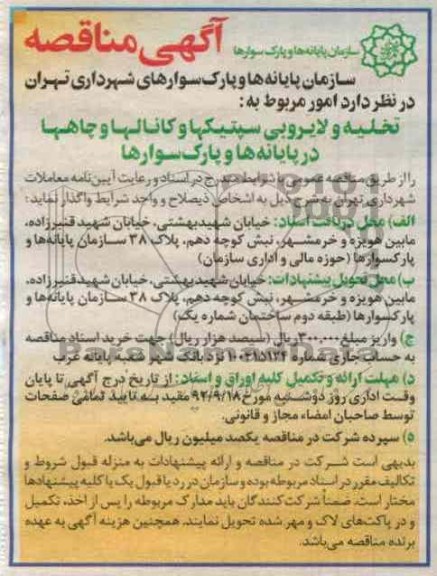 آگهی مناقصه
سازمان پایانه‌ها و پارک سوارها
سازمان پایانه‌ها و پارک‌سوارهای شهرداری تهران
در نظر دارد امور مربوط به:
تخلیه و لایروبی سپتیکها و کانالها و چاهها
در پایانه‌ها و پارک‌سوارها
را از طریق مناقصه عمومی با شرایط مندرج در اسناد و رعایت آیین‌نامه معاملات
شهرداری تهران به شرح ذیل به اشخاص ذیصلاح و واجد شرایط واگذار نماید:
الف) محل دریافت اسناد: خیابان شهید بهشتی، خیابان شهید قنبرزاده،
مابین هویزه و خرمشهر، نبش کوچه دهم، پلاک ۳۸ سازمان پایانه‌ها و
پارکسوارها (حوزه مالی و اداری سازمان)
ب) محل تحویل پیشنهادات: خیابان شهید بهشتی، خیابان شهید قنبرزاده،
مابین هویزه و خرمشهر، نبش کوچه دهم، پلاک ۳۸ سازمان پایانه‌ها و
پارکسوارها (طبقه دوم ساختمان شماره یک)
ج) واریز مبلغ ۳۰۰،۰۰۰ ریال (سیصد هزار ریال) جهت خرید اسناد مناقصه
به حساب جاری شماره ۱۰۰۲۱۵۱۲۴ نزد بانک شهر شعبه پایانه غرب
د) مهلت ارائه و تکمیل کلیه اوراق و اسناد: از تاریخ درج آگهی تا پایان
وقت اداری روز دوشنبه مورخ ۹۲/۹/۱۸ مقید به تایید تمامی صفحات
توسط صاحبان امضاء مجاز و قانونی.
ه) سپرده شرکت در مناقصه یکصد میلیون ریال می‌باشد.
بدیهی است شرکت در مناقصه و ارائه پیشنهادات به منزله قبول شروط و
تکالیف مقرر در اسناد مربوطه بوده و سازمان در رد یا قبول یک یا کلیه پیشنهادها
مختار است. ضمناً شرکت‌کنندگان باید مدارک مربوطه را پس از اخذ، تکمیل
و در پاکت‌های لاک و مهر شده تحویل نمایند. همچنین هزینه آگهی به عهده
برنده مناقصه می‌باشد.